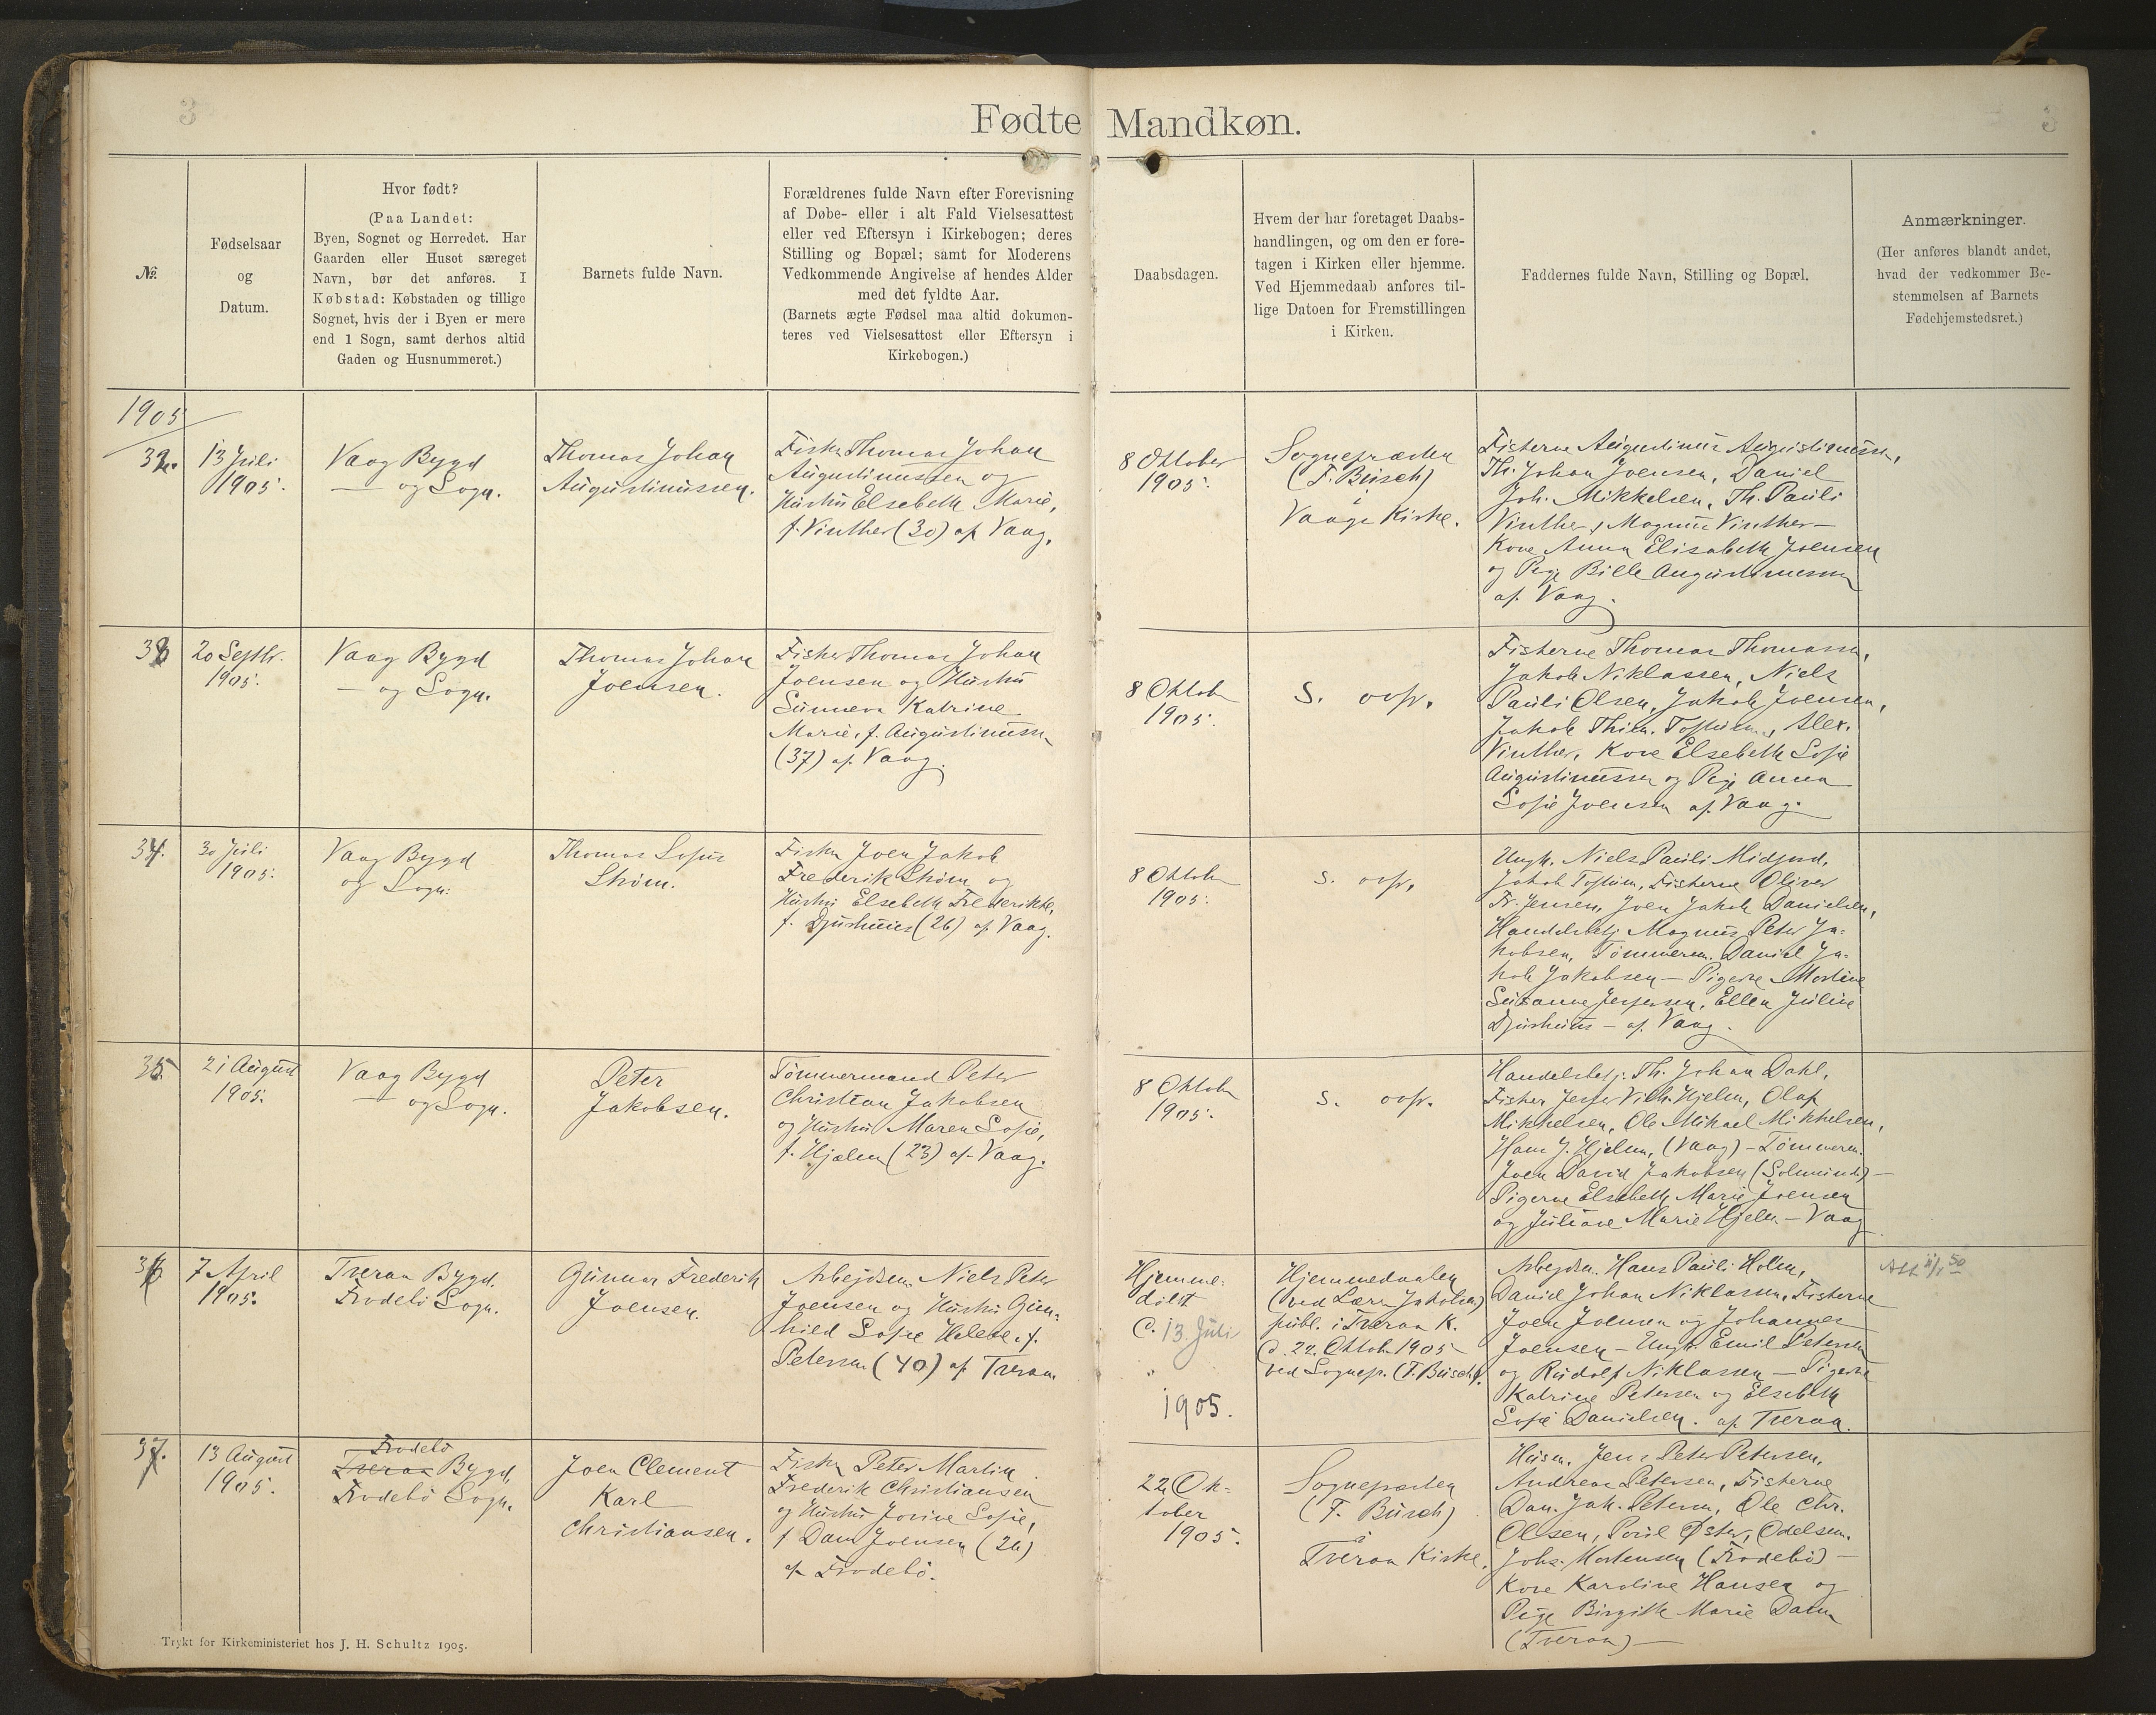 3
Fødte Mandkøn.
3
№.
Fødselsaar
og
Datum.
Hvor født?
(Paa Landet:
Byen, Sognet og Herredet. Har
Gaarden eller Huset særeget
Navn, bør det anføres. I
Købstad: Købstaden og tillige
Sognet, hvis der i Byen er mere
end 1 Sogn, samt derhos altid
Gaden og Husnummeret.)
Barnets fulde Navn.
Forældrenes fulde Navn efter Forevisning
af Døbe- eller i alt Fald Vielsesattest
eller ved Eftersyn i Kirkebogen; deres
Stilling og Bopæl; samt for Moderens
Vedkommende Angivelse af hendes Alder
med det fyldte Aar.
(Barnets ægte Fødsel maa altid dokumen-
teres ved Vielsesattest eller Eftersyn i
Kirkebogen.)
Daabsdagen.
Hvem der har foretaget Daabs-
handlingen, og om den er fore-
tagen i Kirken eller hjemme.
Ved Hjemmedaab anføres til-
lige Datoen for Fremstillingen
i Kirken.
Faddernes fulde Navn, Stilling og Bopæl.
Anmærkninger.
(Her anføres blandt andet,
hvad der vedkommer Be-
stemmelsen af Barnets
Fødehjemstedsret.)
1905
32.
13 Juli
1905.
Vaag Bygd
— og Sogn.
Thomas Johan
Augustinussen.
Fisker Thomas Johan
Augustinussen og
Hustru Elsebeth Marie,
f. Vinther (30) af Vaag.
8 Oktober
1905.
Sognepræsten
(F. Büsch)
i
Vaags Kirke.
Fiskerne Augustinus Augustinussen,
Th. Johan Joensen, Daniel
Joh. Mikkelsen, Th. Pauli
Vinther, Magnus Vinther —
Kone Anna Elisabeth Joensen
og Pige Bille Augustinussen
af Vaag.
33
20 Septbr.
1905.
Vaag Bygd
— og Sogn.
Thomas Johan
Joensen.
Fisker Thomas Johan
Joensen og Hustru
Sunneva Katrine
Marie, f. Augustinussen
(37) af Vaag.
8 Oktob
1905.
S. ovfr.
Fiskerne Thomas Thomassen,
Jakob Niklassen, Niels
Pauli Olsen, Jakob Joensen,
Jakob Thim. Toftum, Alex.
Vinther, Kone Elsebeth Sofie
Augustinussen og Pige Anna
Sofie Joensen af Vaag.
34.
30 Juli
1905.
Vaag Bygd
og Sogn.
Thomas Sofus
Strøm.
Fisker Joen Jakob
Frederik Strøm og
Hustru Elsebeth Frederikke,
f. Djurhuus (26) af Vaag.
8 Oktob
1905.
S. ovfr.
Ungk. Niels Pauli Midjord,
Jakob Toftum, Fiskerne Oliver
Fr. Jensen, Joen Jakob Danielsen,
Handelsbetj. Magnus Peter Ja-
kobsen, Tømmerm. Daniel Ja-
kob Jakobsen — Pigerne Mortine
Susanne Jespersen, Ellen Juline
Djurhuus — af Vaag.
35.
21 August
1905.
Vaag Bygd
— og Sogn.
Peter
Jakobsen.
Tømmermand Peter
Christian Jakobsen
og Hustru Maren Sofie,
f. Hjælm (23) af Vaag.
8 Oktob
1905.
S. ovfr.
Handelsbetj. Th. Johan Dahl,
Fisker Jesper Vilh. Hjelm, Olaf
Mikkelsen, Ole Mikael Mikkelsen,
Hans J. Hjelm, (Vaag) — Tømmerm.
Joen David Jakobsen (Solmunde) —
Pigerne Elsebeth Marie Joensen
og Juliane Marie Hjelm — Vaag
36
7 April
1905.
Tveraa Bygd,
Frodebø Sogn.
Gunnar Frederik
Joensen.
Arbejdsm. Niels Peter
Joensen og Hustru Gun-
hild Sofie Helene, f.
Petersen (40) af Tveraa.
Hjemme-
døbt
C. 13. Juli
1905.
Hjemmedaaben
(ved Lærer Jakobsen)
publ. i Tveraa K.
C. 22. Oktob 1905
ved Sognep. (F. Büsch).
Arbejdsm. Hans Pauli Holm,
Daniel Johan Niklassen, Fiskerne
Joen Joensen og Johannes
Joensen — Ungk. Emil Petersen
og Rudolf Niklassen — Pigerne
Katrine Petersen og Elsebeth
Sofie Danielsen. af Tveraa.
37.
13 August
1905.
Frodebø
Tveraa Bygd,
Frodebø Sogn.
Joen Clement
Karl
Christiansen.
Fisker Peter Martin
Frederik Christiansen
og Hustru Jovine Sofie,
f. Dam Joensen (26)
af Frodebø.
22 Ok-
tober
1905.
Sognepræsten
(F. Büsch)
i
Tveraa Kirke.
Husm. Jens Peter Petersen,
Andreas Petersen, Fiskerne
Dan. Jak. Petersen, Ole Chr.
Olsen, Poul Øster, Odelsm.
Johs. Mortensen (Frodebø) —
Kone Karoline Hansen og
Pige Birgitte Marie Dam
(Tveraa) —
Trykt for Kirkeministeriet hos J. H. Schultz 1905.